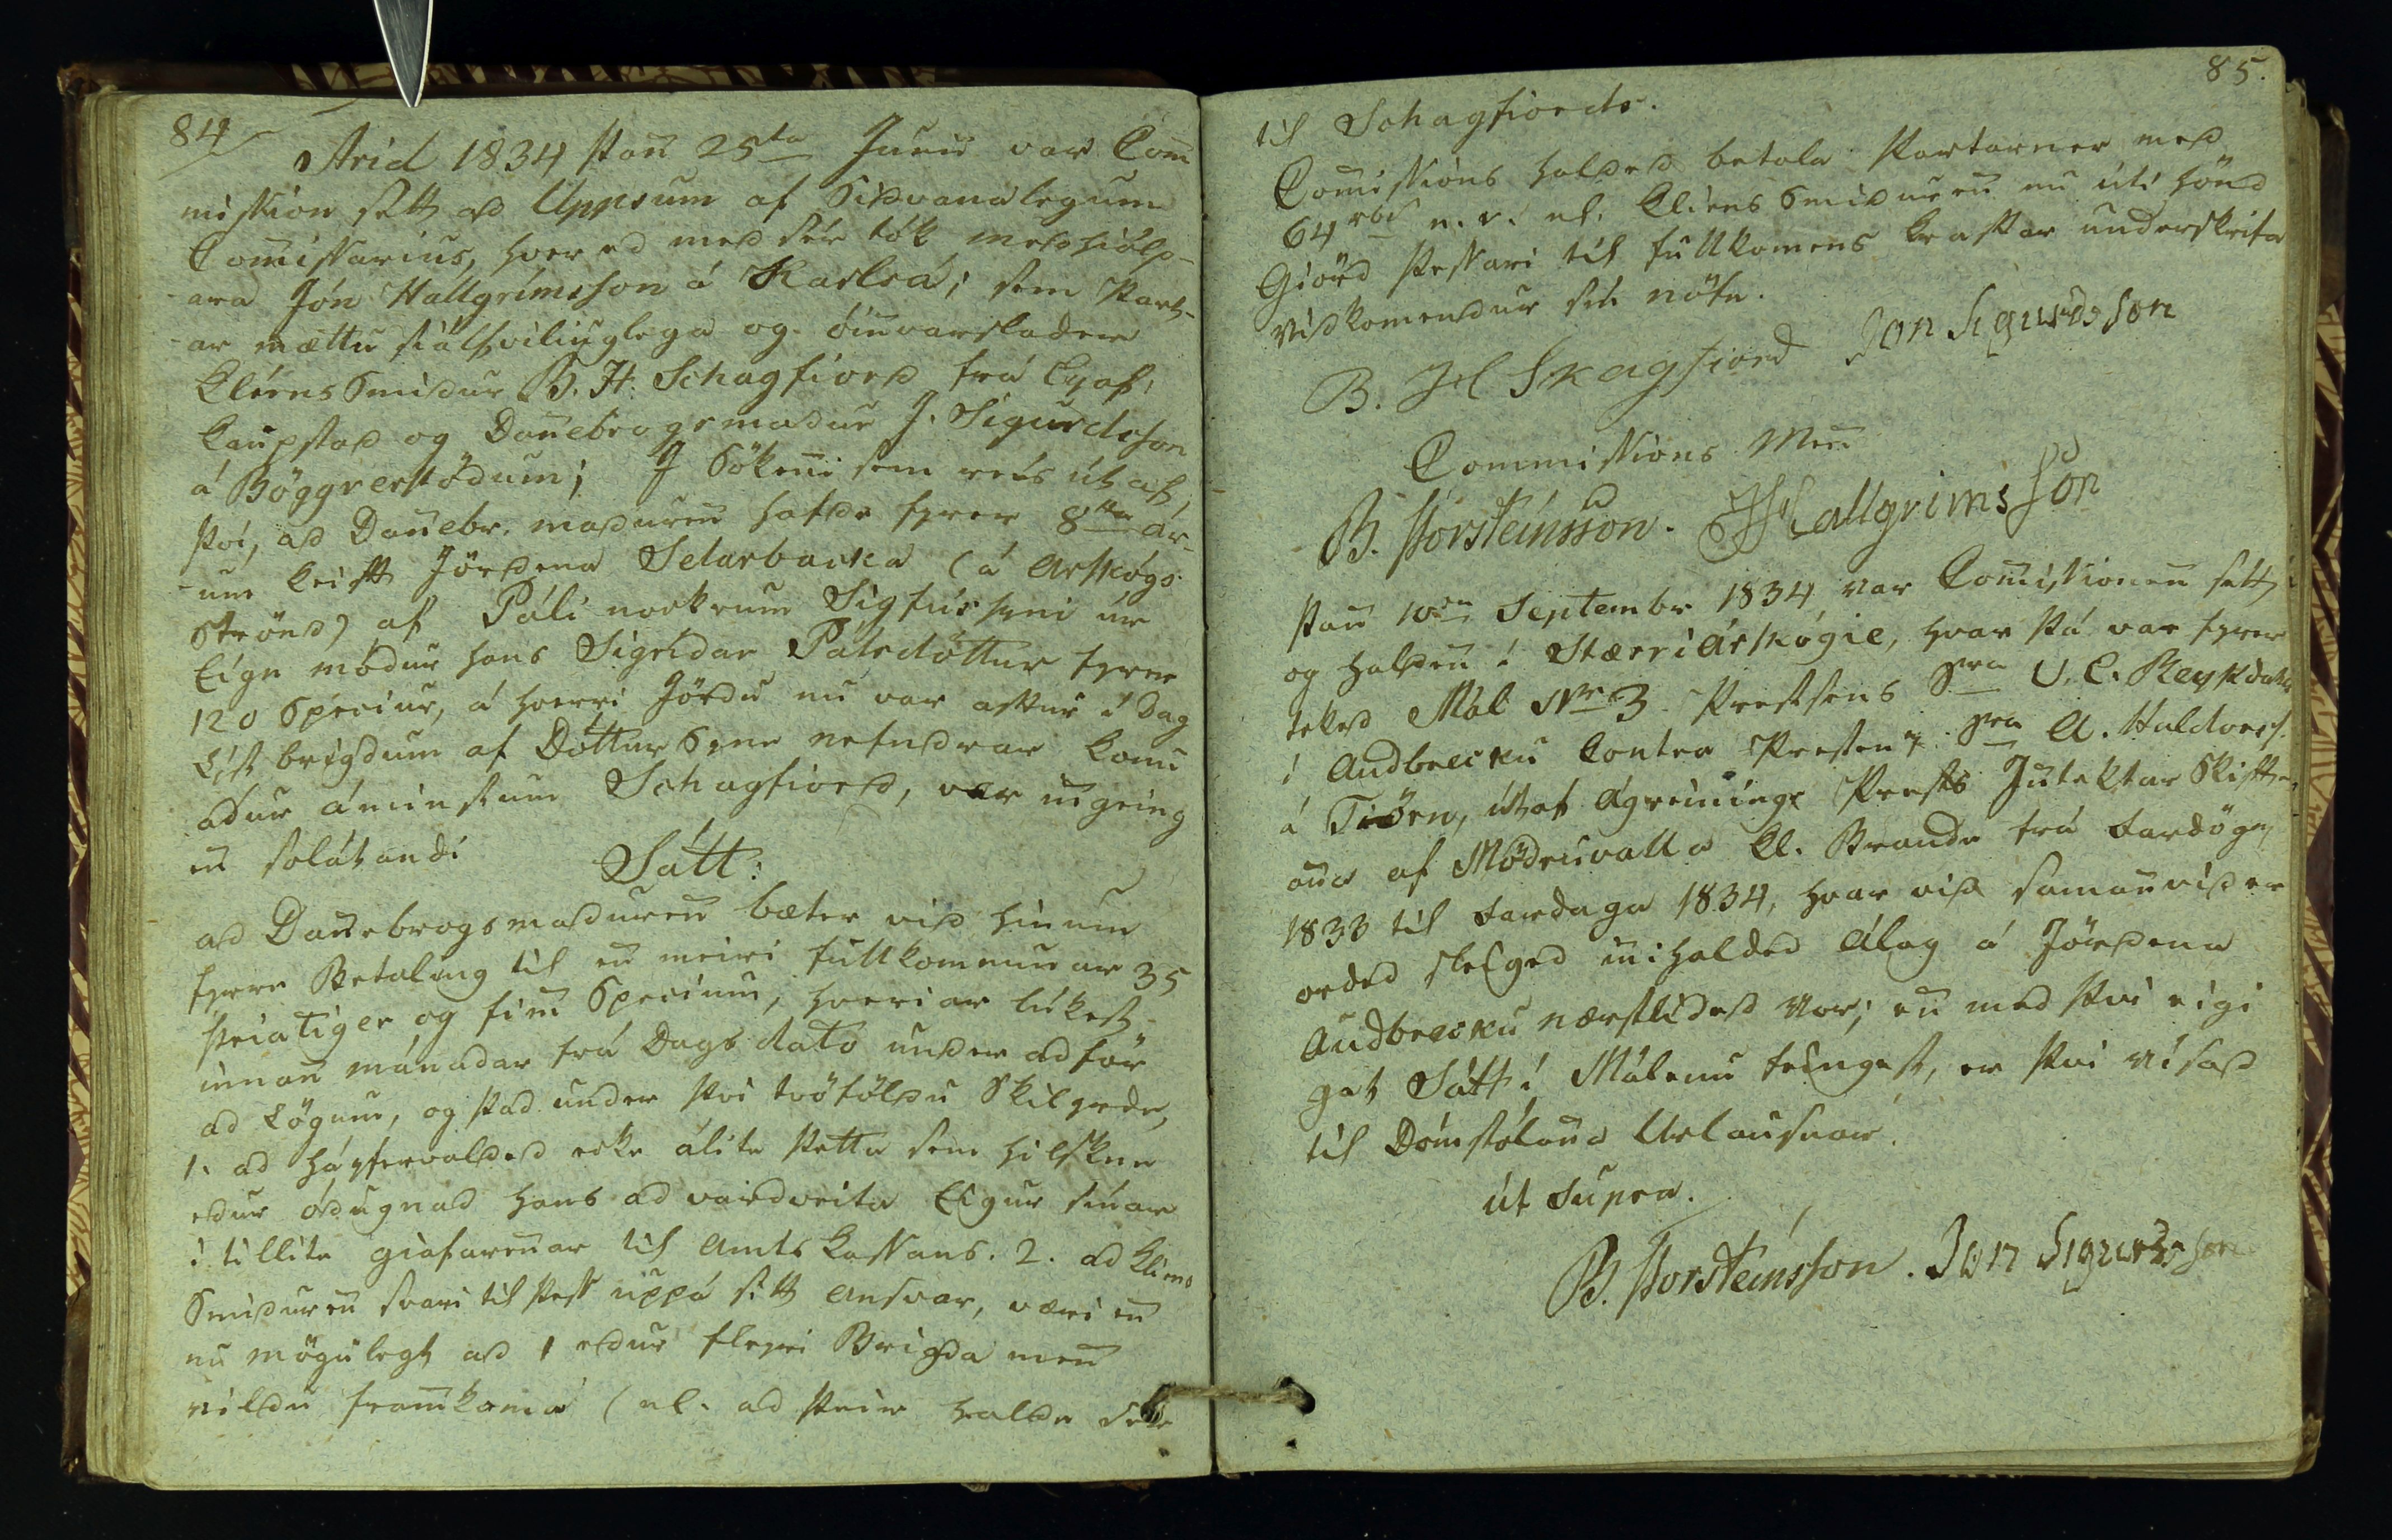 84
Arid 1834 þan 25ta Junii var Com
mission sett að Uppsum af Siðvanalegum
Comissarius, hver ed með sér tók meðhiálp-
ara Jón Hallgrímsson á Karlsá; sem Part-
ar mættu siálfviliuglega og óinvarsladir
Cléns Smiður B. H. Schagfiord frá Eyaf.
Kaupstað og Danebrogsmadur J. Sigurdsson
á Böggverstödum; I Sökinni sem reis út af
því, að Danebr. maðuren hafde fyrer 8ta ár-
um keift Jörðena Selarbacka (á Arskógs
Strönd) af Páli nockrum Sigfússyni úr
Eign módur hans Sigrídar Pálsdóttur fyrer
120 Speciur, á hverri Jördu nu var aftur i Dag
lyst brigdum af Dóttur Syne nefndrar Konu
adur ámintum Schagfiord, var ingeing
in soláhandi
Sátt:
að Danebrogsmaðuren bæter við hinum
fyrer Betaling til en meiri fullkomnunar 35
þriatiger og fim Specium, hveriar lúkest
innan mánadar frá Dags dato under adför
ad Lögum, og það under því tvöföldu Skilyrde,
1. ad háyfervaldeð ecke álite þetta sem hilsken
edur ódugnad hans ad vardveita Eigur sinar
i tillite giafarennar til Amts Kassans. 2. ad Klens
Smiðuren svari til þess uppá sitt Ansvar, væri en
nu mögulegt að 1 eður fleyri Brigda menn
vildu framkoma (nl. ad þeir halde sér
85.
til Schagfiords.
Comissions haldeð betala Partarner með
64 rbs n. v. nl. Cliens Smiðuren nu úti hönd
Giörd þessari til fullkomens Kraftar underskrifa
Viðkomendur sín nöfn.
B. H Skagfiord Jon Sigurdsson
Commissions Menn
B. Þorsteinsson. JHallgrimsson
þan 10da Septembr 1834 var Comissionen sett
og halden í Stærriárskógie, hvar þá var fyrer
teked Mál Nr 3. Prestsens Sra J. C. Reykdahls
í Audbrecku Contra Presten Sra A. Haldorss.
á Tiörn, útaf ágreinings Prests Intektar Skifte
ana af Mödruvalla Kl. Braude frá Fardögum
1833 til Fardaga 1834, hvar við samanvið er
orded sleiged inihalded Álag á Jörðena
Audbrecku næstliðeð Vor; en med því eigi
gat Sátt í Málenu feingest, er því vísað
til Dómstólana Urlausnar.
út Supra.
B. Þorsteinsson. Jon Sigurdsson